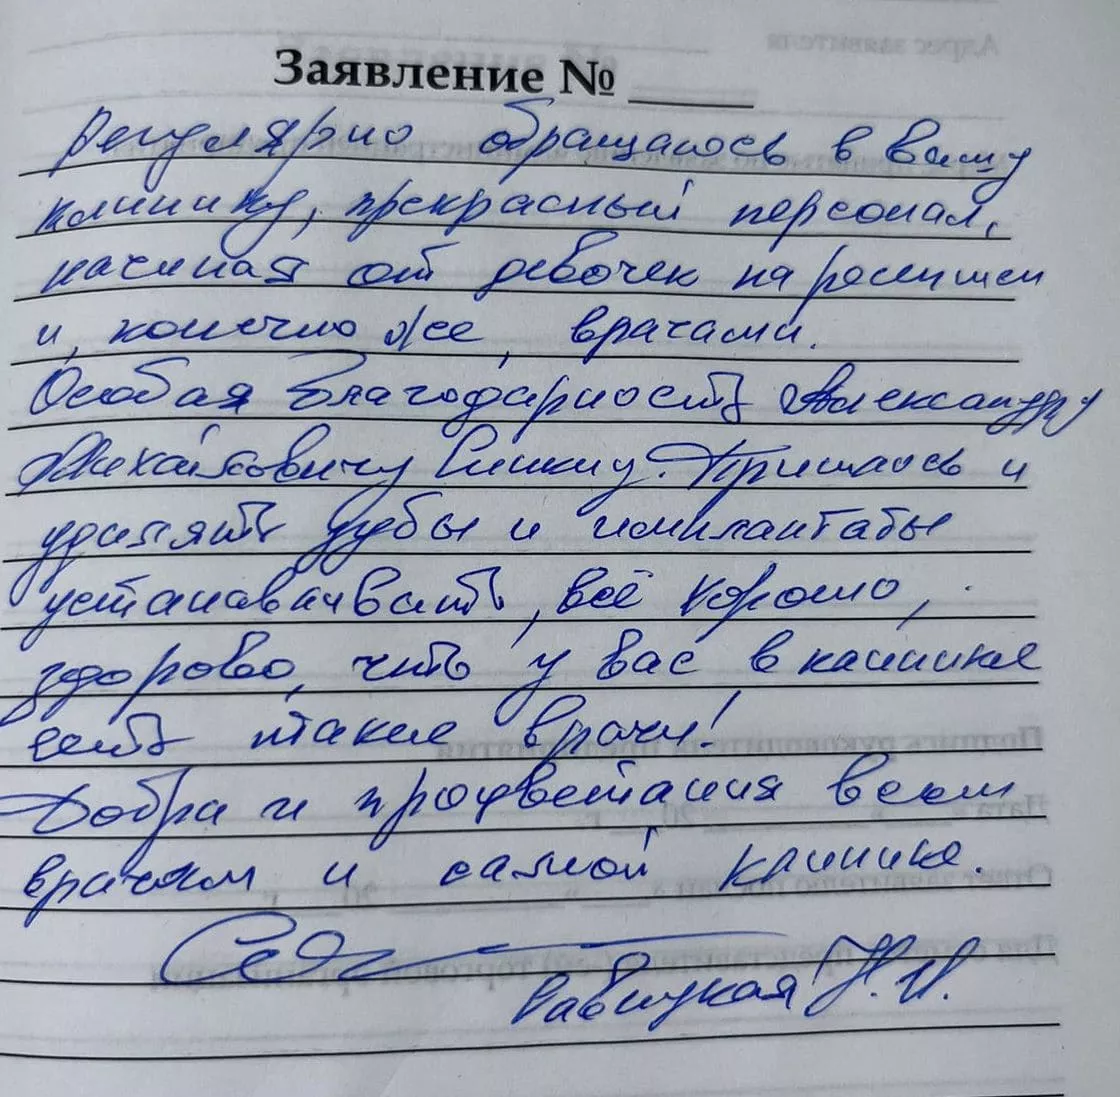 Заявление №
Регулярно обращаюсь в вашу
клинику, прекрасный персонал,
начиная от девочек на ресепшен
и, конечно же, врачами.
Особая благодарность Александру
Михайловичу. Пришлось и
удалять зубы и имплантаты
устанавливать, всё хорошо,
здорово, что у вас в клинике
есть такие врачи!
Добра и процветания всем
врачам и самой клинике.
Н.И.